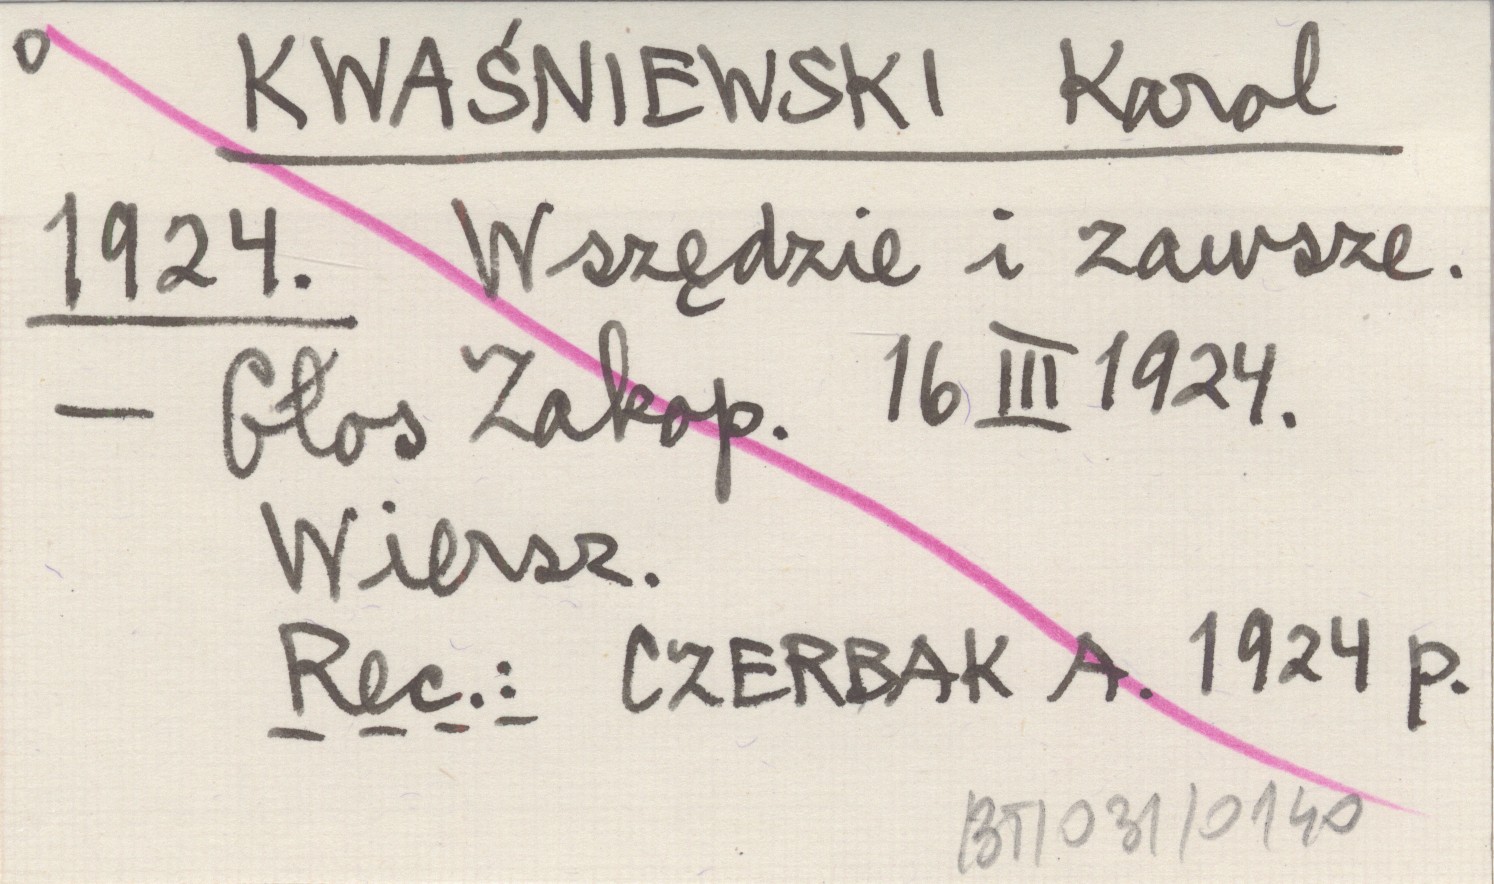 o KWAŚNIEWSKI Karol
1924. Wszędzie i zawsze.
— Głos Zakop. 16 III 1924.
Wiersz.
Rec.: CZERBAK A. 1924 p.
BT/031/0140